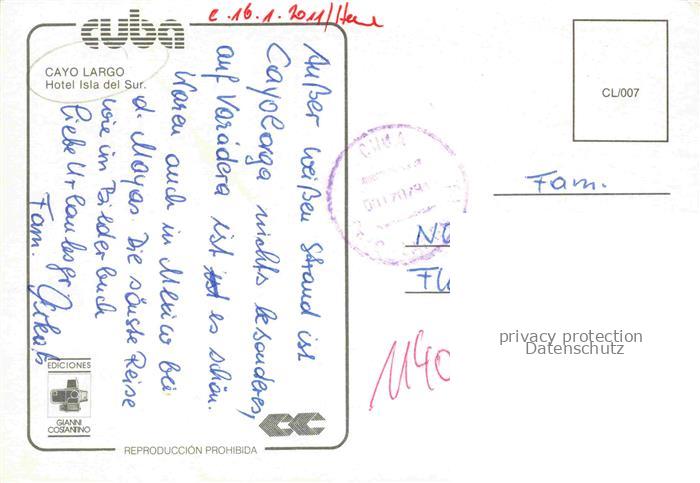 c. 16.1.2011/
cuba
CAYO LARGO
Hotel Isla del Sur.
Außer weißen Strand ist
Cayolorga nichts besonderes,
auf Varadera ist ist es schön.
Waren auch in Mexico bei
d. Mayas. Die Reise
wie im Bilderbuch
liebe Urlaubsgr.
Fam.
EDICIONES
GIANNI
COSTANTINO
REPRODUCCIÓN PROHIBIDA
CL/007
CUBA
Fam.
1140
privacy protection
Datenschutz